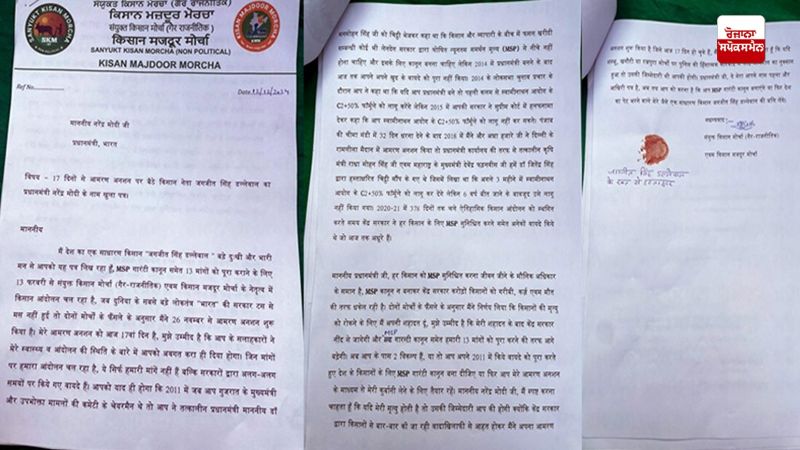 संयुक्त किसान मोर्चा (गैर राजनीतिक)
किसान मज़दूर मोरचा
संयुक्त किसान मोर्चा (गैर राजनीतिक)
किसान मजदूर मोर्चा
SANYUKT KISAN MORCHA (NON POLITICAL)
KISAN MAJDOOR MORCHA
SANYUKT KISAN MORCHA
SKM
Ref No.
Date. 12/12/2024
माननीय नरेंद्र मोदी जी
प्रधानमंत्री, भारत
विषय - 17 दिनों से आमरण अनशन पर बैठे किसान नेता जगजीत सिंह डल्लेवाल का
प्रधानमंत्री नरेंद्र मोदी के नाम खुला पत्र।
माननीय
मैं देश का एक साधारण किसान "जगजीत सिंह डल्लेवाल" बड़े दुःखी और भारी
मन से आपको यह पत्र लिख रहा हूँ, MSP गारंटी कानून समेत 13 मांगों को पूरा कराने के लिए
13 फरवरी से संयुक्त किसान मोर्चा (गैर-राजनीतिक) एवम किसान मजदूर मोर्चा के नेतृत्व में
किसान आंदोलन चल रहा है, जब दुनिया के सबसे बड़े लोकतंत्र "भारत" की सरकार टस से
मस नहीं हुई तो दोनों मोर्चों के फैसले के अनुसार मैंने 26 नवम्बर से आमरण अनशन शुरू
किया है। मेरे आमरण अनशन को आज 17वां दिन है, मुझे उम्मीद है कि आप के सलाहकारों ने
मेरे स्वास्थ्य व आंदोलन की स्थिति के बारे में आपको अवगत करा ही दिया होगा। जिन मांगों
पर हमारा आंदोलन चल रहा है, ये सिर्फ हमारी मांगें नहीं हैं बल्कि सरकारों द्वारा अलग-अलग
समयों पर किये गए वायदे हैं। आपको याद ही होगा कि 2011 में जब आप गुजरात के मुख्यमंत्री
और उपभोक्ता मामलों की कमेटी के चेयरमैन थे तो आप ने तत्कालीन प्रधानमंत्री माननीय डॉ
मनमोहन सिंह जी को चिट्ठी भेजकर कहा था कि किसान और व्यापारी के बीच में फसल खरीदी
सम्बन्धी कोई भी लेनदेन सरकार द्वारा घोषित न्यूनतम समर्थन मूल्य (MSP) से नीचे नहीं
होना चाहिए और इसके लिए कानून बनना चाहिए लेकिन 2014 में प्रधानमंत्री बनने के बाद
आज तक आपने अपने खुद के वायदे को पूरा नहीं किया। 2014 के लोकसभा चुनाव प्रचार के
दौरान आप ने कहा था कि यदि आप प्रधानमंत्री बने तो पहली कलम से स्वामीनाथन आयोग
के C2+50% फॉर्मूले को लागू करेंगे लेकिन 2015 में आपकी सरकार ने सुप्रीम कोर्ट में हलफनामा
देकर कहा कि आप स्वामीनाथन आयोग के C2+50% फॉर्मूले को लागू नहीं कर सकते। पंजाब
की चीमा मंडी में 32 दिन धरना देने के बाद 2018 में मैंने और अन्ना हजारे जी ने दिल्ली के
रामलीला मैदान में आमरण अनशन किया तो प्रधानमंत्री कार्यालय की तरफ से तत्कालीन कृषि
मंत्री राधा मोहन सिंह जी एवम महाराष्ट्र के मुख्यमंत्री देवेंद्र फडनवीस जी हमें डॉ जितेंद्र सिंह
द्वारा हस्ताक्षरित चिट्ठी सौंप के गए थे जिसमें लिखा था कि अगले 3 महीने में स्वामीनाथन
आयोग के C2+50% फॉर्मूले को लागू कर देंगे लेकिन 6 वर्ष बीत जाने के बावजूद उसे लागू
नहीं किया गया। 2020-21 में 378 दिनों तक चले ऐतिहासिक किसान आंदोलन को स्थगित
करते समय केंद्र सरकार ने हर किसान के लिए MSP सुनिश्चित करने समेत अनेकों वायदे किये
थे जो आज तक अधूरे हैं।
माननीय प्रधानमंत्री जी, हर किसान को MSP सुनिश्चित करना जीवन जीने के मौलिक अधिकार
के समान है, MSP कानून न बनाकर केंद्र सरकार करोड़ों किसानों को गरीबी, कर्ज़ एवम मौत
की तरफ धकेल रही है। दोनों मोर्चों के फैसले के अनुसार मैंने निर्णय लिया कि किसानों की मृत्यु
को रोकने के लिए मैं अपनी शहादत दूं, मुझे उम्मीद है कि मेरी शहादत के बाद केंद्र सरकार
MSP
नींद से जागेगी और गारंटी कानून समेत हमारी 13 मांगों को पूरा करने की तरफ आगे
बढ़ेगी। अब आप के पास 2 विकल्प हैं, या तो आप अपने 2011 में किये वायदे को पूरा करते
हुए देश के किसानों के लिए MSP गारंटी कानून बना दीजिए या फिर आप मेरे आमरण अनशन
के माध्यम से मेरी कुर्बानी लेने के लिए तैयार रहें। माननीय नरेंद्र मोदी जी, मैं स्पष्ट करना
चाहता हूँ कि यदि मेरी मृत्यु होती है तो उसकी जिम्मेदारी आप की होगी क्योंकि केंद्र सरकार
द्वारा किसानों से बार-बार की जा रही वादाखिलाफी से आहत होकर मैंने अपना आमरण
अनशन शुरू किया है जिसे आज 17 दिन हो चुके हैं,
सद्भावनापूर्वक
संयुक्त किसान मोर्चा (गैर-राजनीतिक)
एवम किसान मजदूर मोर्चा
जगजीत सिंह डल्लेवाल
के रक्त से हस्ताक्षर
ਰੋਜ਼ਾਨਾ
ਸਪੋਕਸਮੈਨ